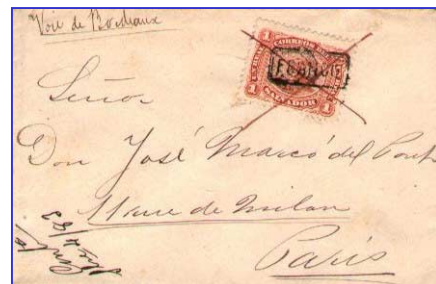 Voie de Bordeaux
1 CORREOS 1
FRANCO
1 SALVADOR 1
Señor
Don José Marcó del Pont
11 rue de Milan
Paris